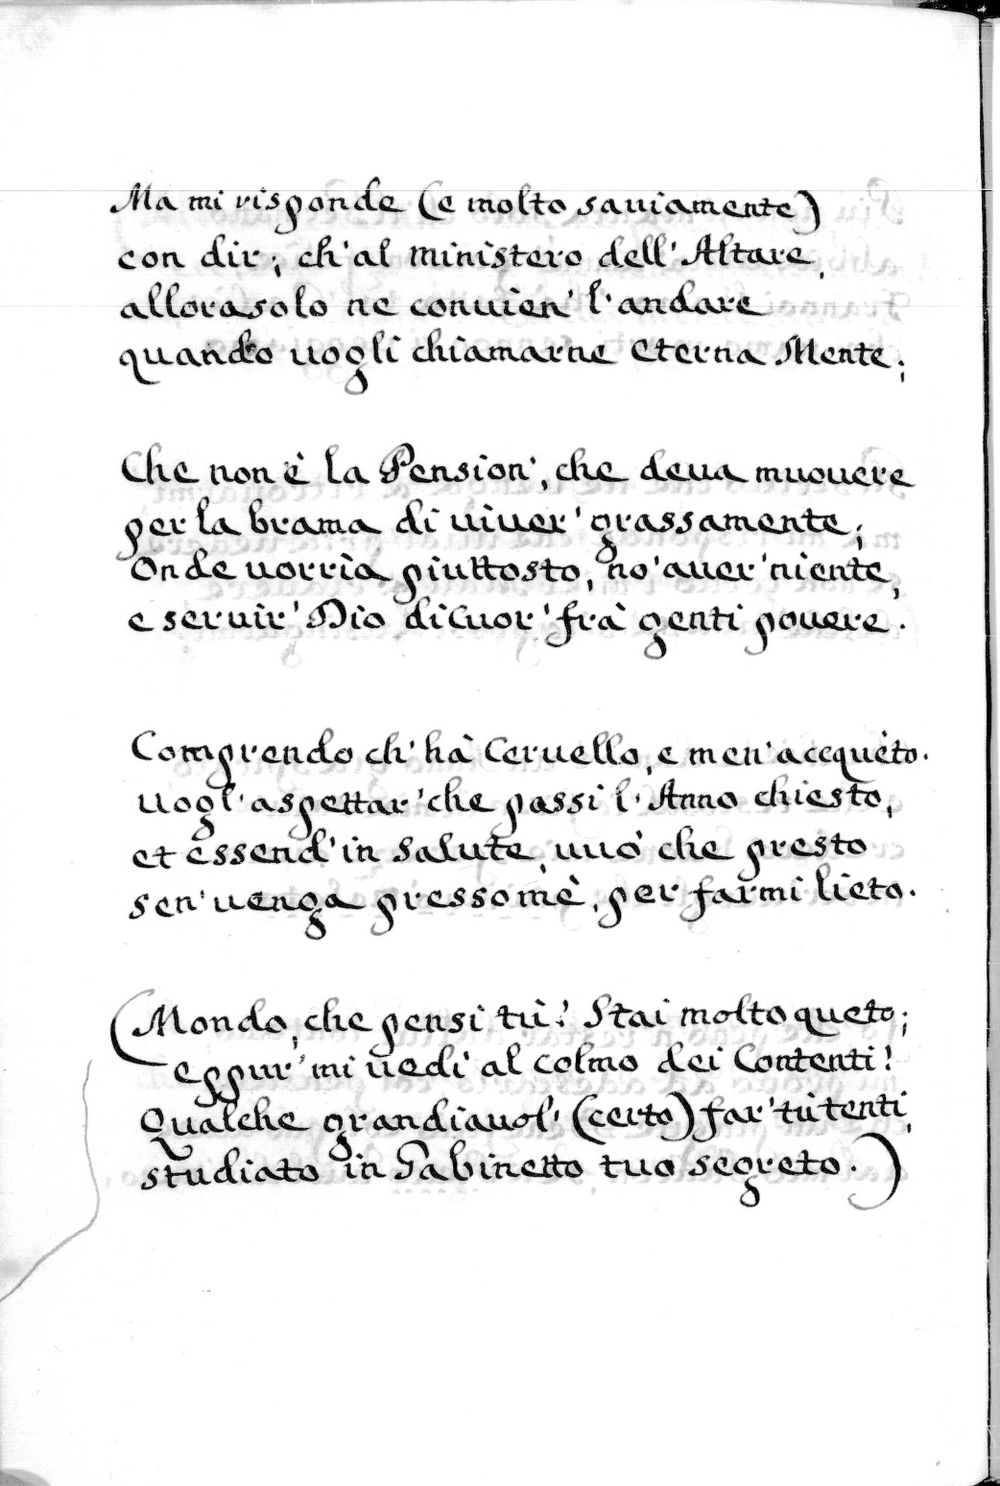 Ma mi risponde (e molto sauiamente)
con dir; ch'al ministero dell'Altare,
allorasolo ne conuien' l'andare
quando uogli chiamarne eterna Mente;
Che non è la Pension', che deua muouere
per la brama di uiuer' grassamente;
Onde uorrìa piuttosto, no'auer'niente,
e seruir' Dio diCuor' frà genti pouere.
Comprendo ch'hà Ceruello, e men'accquèto.
uogl'aspettar'che passi l'Anno chiesto,
et essend'in salute, uuò che presto
sen'uenga pressomè, per farmi lieto.
(Mondo, che pensi tù? Stai molto queto;
eppur'mi uedi al colmo dei Contenti!
Qualche grandiauol' (certo) far'tù tenti,
studiato in Gabinetto tuo segreto.)